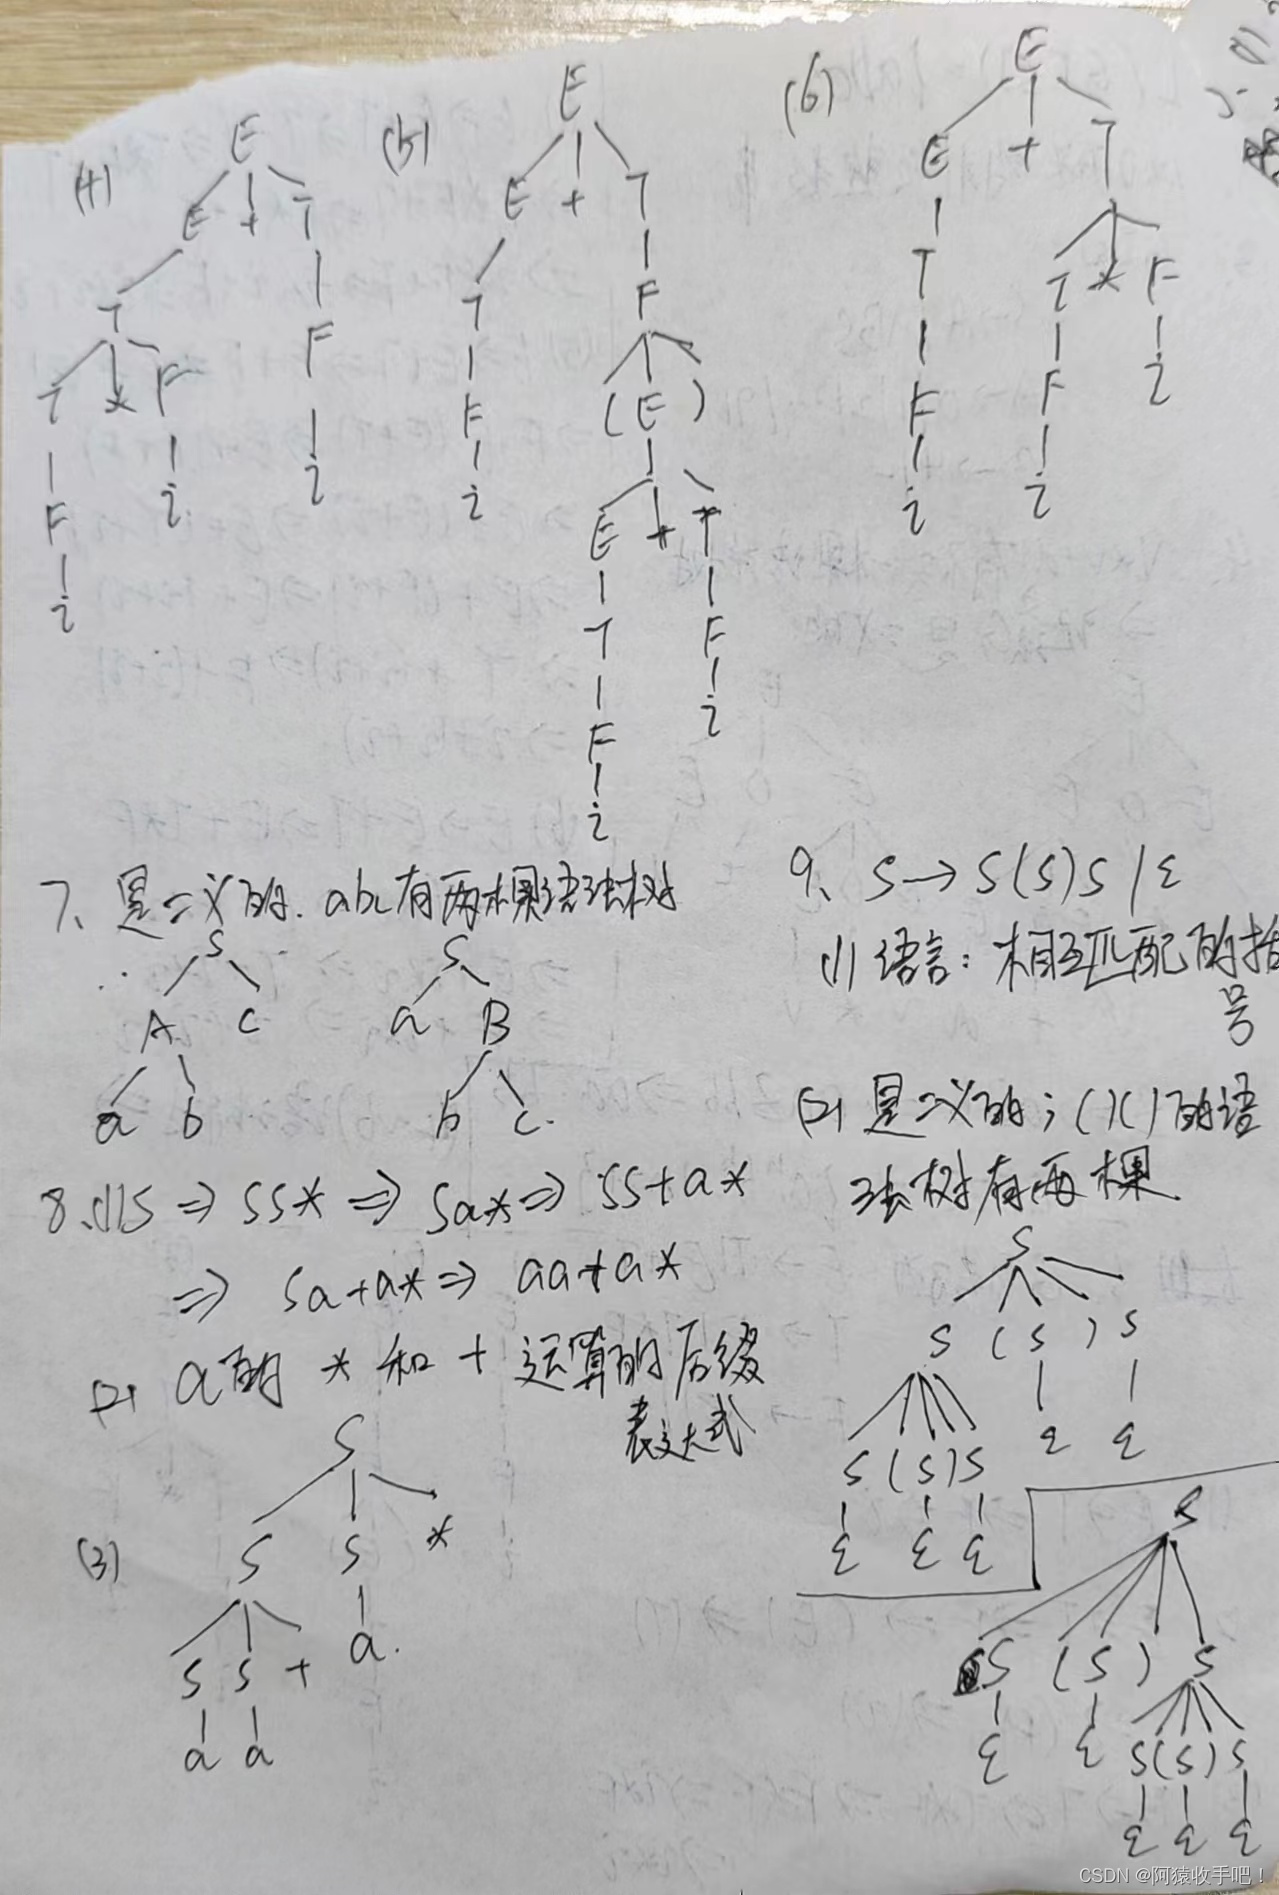 (4)
E
E + T
T F
T * F i
F i
i
(5)
E
E + T
T F
F ( E )
i E + T
T F
F i
i
(6)
E
E + T
T T * F
F F i
i i
7、是二义的. abc有两棵语法树
S
A c
a b
S
a B
b c.
8、(1) S ⇒ SS* ⇒ Sa* ⇒ SS+a*
⇒ Sa+a* ⇒ aa+a*
(2) a的 * 和 + 运算的后缀
表达式
(3)
S
S S *
S S + a.
a a
9、 S → S(S)S | ε
(1) 语言: 相互匹配的括
号
(2) 是二义的; ()() 的语
法树有两棵
S
S ( S ) S
S ( S ) S ε ε
ε ε ε
S
S ( S ) S
ε ε S ( S ) S
ε ε ε
CSDN @阿猿收手吧！